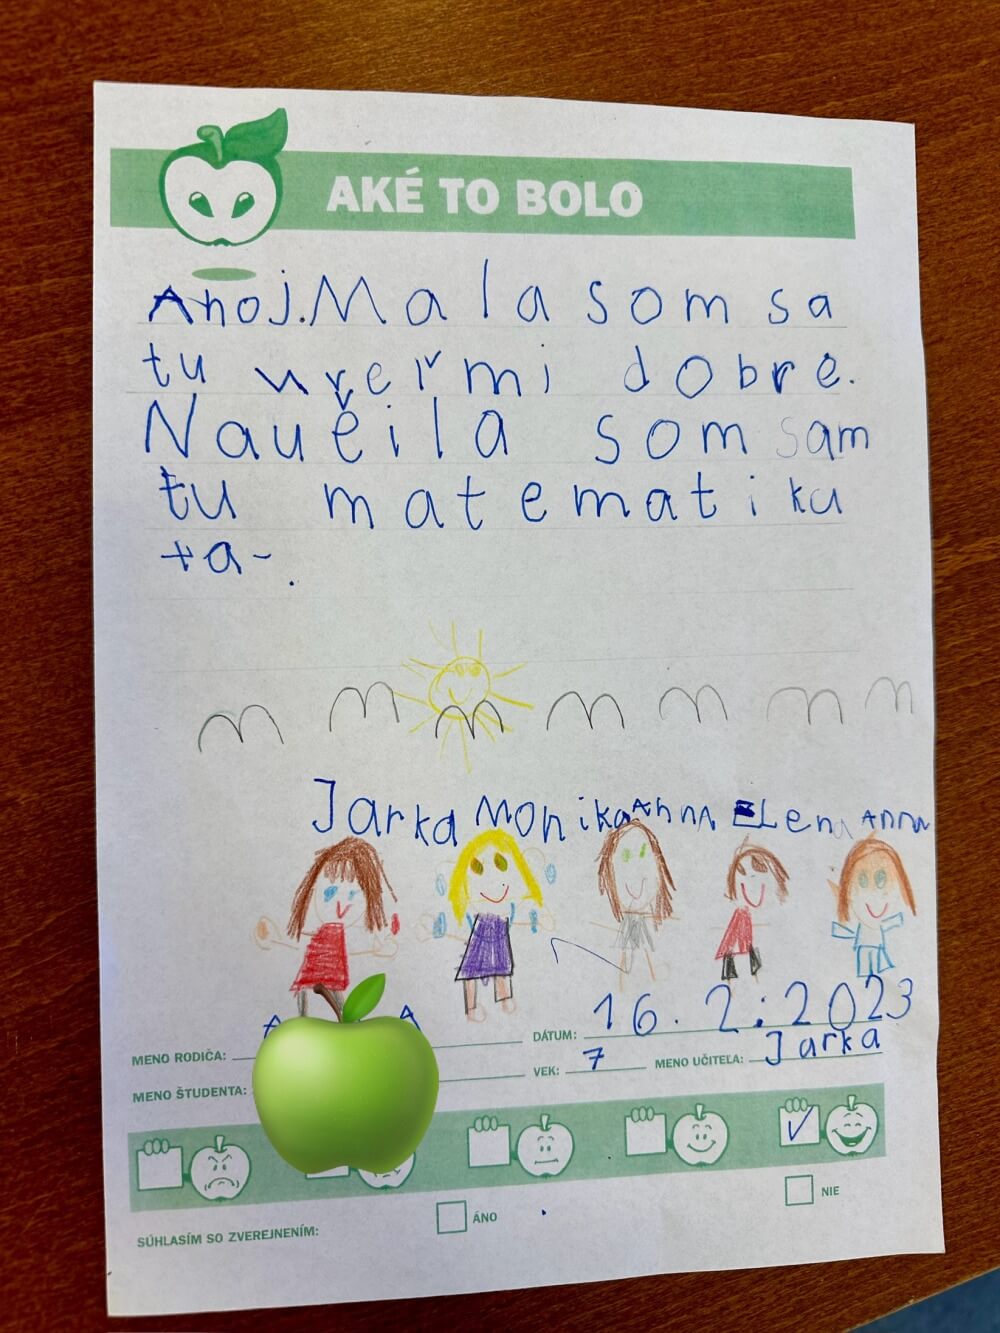 AKÉ TO BOLO
Ahoj. Mala som sa
tu veľmi dobre.
Naučila som sam
tu matematika
ta-.
Jarka Monika Anna Elena Anna
16. 2: 2023
MENO RODIČA: DÁTUM:
MENO ŠTUDENTA: VEK: 7 MENO UČITEĽA: Jarka
SÚHLASÍM SO ZVEREJNENÍM: ÁNO NIE